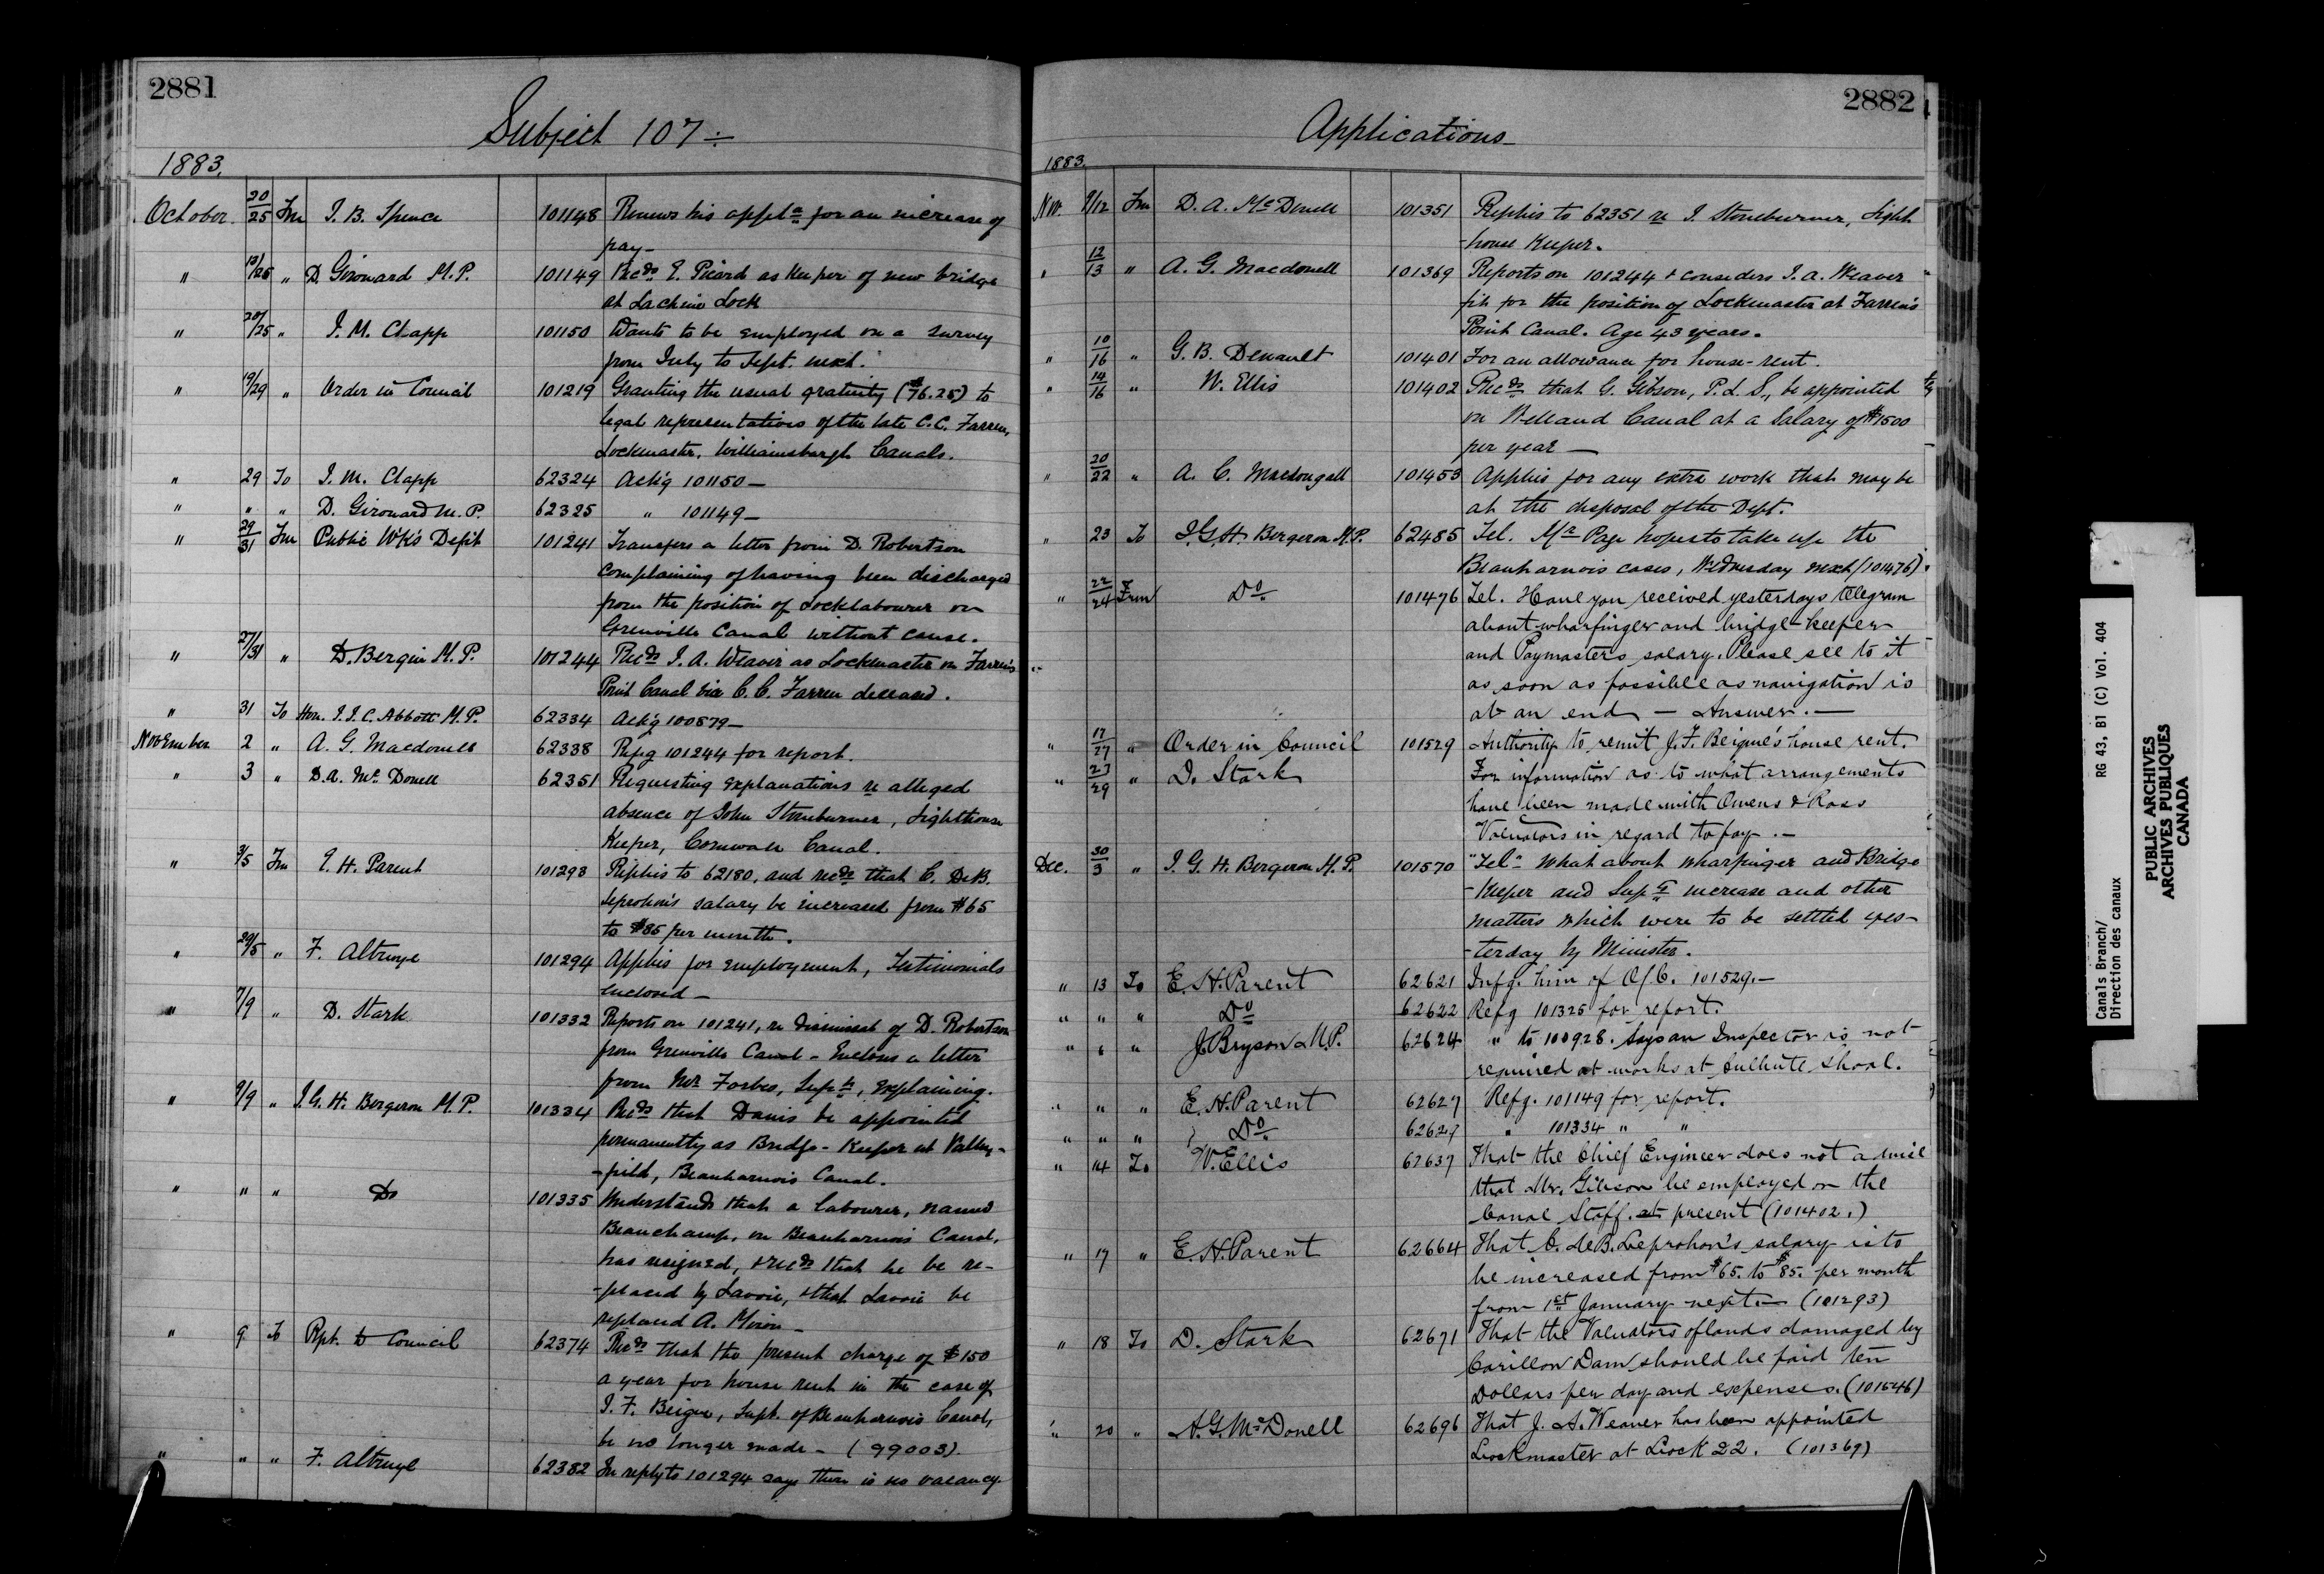 2881
Subject 107 ÷
1883.
October. 20/25 Frm J. B. Spence 101148 Renews his appl.n for an increase of
pay—
" 13/25 " D. Girouard M.P. 101149 Rec.ds E. Picard as Keeper of new bridge
at Lachine Lock
" 20/25 " J. M. Clapp 101150 Wants to be employed on a survey
from July to Sept. next.
" 19/29 " Order in Council 101219 Granting the usual gratuity ($76.25) to
legal representatives of the late C. C. Farren,
Lockmaster, Williamsburgh Canals.
" 29 To J. M. Clapp 62324 Ack'g 101150—
" " " D. Girouard M.P. 62325 " 101149—
" 29/31 Frm Public Wk's Dep't 101241 Transfers a letter from D. Robertson
complaining of having been discharged
from the position of Locklabourer on
Grenville Canal without cause.
" 27/31 " D. Bergin M.P. 101244 Rec.ds J. A. Weaver as Lockmaster on Farren's
Point Canal vice C. C. Farren deceased.
" 31 To Hon. J. J. C. Abbott M.P. 62334 Ack'g 100879—
November 2 " A. G. Macdonell 62338 Ref'g 101244 for report.
" 3 " D. A. McDonell 62351 Requesting explanations re alleged
absence of John Stoneburner, Lighthouse
Keeper, Cornwall Canal.
" 3/5 Frm E. H. Parent 101293 Replies to 62180, and rec.ds that C. DeB.
Leprohon's salary be increased from $65
to $85 per month.
" 29/5 " F. Altruye 101294 Applies for employment, Testimonials
enclosed—
" 7/9 " D. Stark 101332 Reports on 101241, re dismissal of D. Robertson
from Grenville Canal - Encloses a letter
from Mr. Forbes, Sup.t, explaining.
" 9/9 " J. G. H. Bergeron M.P. 101334 Rec.ds that Danis be appointed
permanently as Bridge-Keeper at Valley-
-field, Beauharnois Canal.
" " " Do 101335 Understands that a labourer, named
Beauchamp, on Beauharnois Canal,
has resigned, & rec.ds that he be re-
-placed by Lavoie, & that Lavoie be
replaced A. Miron—
" 9 To Rpt. to Council 62374 Rec.ds that the present charge of $150
a year for house rent in the case of
J. F. Beique, Supt. of Beauharnois Canal,
be no longer made - (99003).
" " " F. Altruye 62382 In reply to 101294 says there is no vacancy.
2882
Applications—
1883.
Nov. 9/12 Frm D. A. McDonell 101351 Replies to 62351 re J. Stoneburner, Light
-house Keeper.
" 12/13 " A. G. Macdonell 101369 Reports on 101244 & considers J. A. Weaver
fit for the position of Lockmaster at Farren's
Point Canal. Age 43 years.
" 10/16 " G. B. Denault 101401 For an allowance for house-rent.
" 14/16 " W. Ellis 101402 Rec.ds that G. Gibson, P.L.S., be appointed
on Welland Canal at a Salary of $1500
per year —
" 20/22 " A. C. Macdougall 101453 Applies for any extra work that may be
at the disposal of the Dept.
" 23 To J. G. H. Bergeron M.P. 62485 Tel. Mr Page hopes to take up the
Beauharnois cases, Wednesday next (101476).
" 22/24 Frm Do 101476 Tel. Have you received yesterdays telegram
about wharfinger and bridge-keeper
and Paymasters salary. Please see to it
as soon as possible as navigation is
at an end — Answer. —
" 17/27 " Order in Council 101529 Authority to remit J. F. Beique's house rent.
" 23/29 " D. Stark For information as to what arrangements
have been made with Owens & Ross
Valuators in regard to pay. —
Dec. 30/3 " J. G. H. Bergeron M.P. 101570 "Tel" What about wharfinger and Bridge
-Keeper and Sup.t increase and other
matters which were to be settled yes-
-terday by Minister.
" 13 To E. H. Parent 62621 Infg. him of O/C. 101529. —
" " " Do 62622 Refg 101325 for report.
" " " J. Bryson M.P. 62624 " to 100928. Says an Inspector is not
required at works at Culbute Shoal.
" " " E. H. Parent 62627 Refg. 101149 for report.
" " " Do 62627 " 101334 " "
" 14 To W. Ellis 62637 That the Chief Engineer does not advise
that Mr. Gibson be employed on the
Canal Staff at present (101402.)
" 17 " E. H. Parent 62664 That C. DeB. Leprohon's salary is to
be increased from $65. to $85. per month
from 1st January next. — (101293)
" 18 To D. Stark 62671 That the Valuators of lands damaged by
Carillon Dam should be paid ten
Dollars per day and expenses. (101546)
" 20 " A. G. McDonell 62696 That J. A. Weaver has been appointed
Lockmaster at Lock 22. (101369)
Canals Branch/
Direction des canaux
RG 43, B1 (C) Vol. 404
PUBLIC ARCHIVES
ARCHIVES PUBLIQUES
CANADA